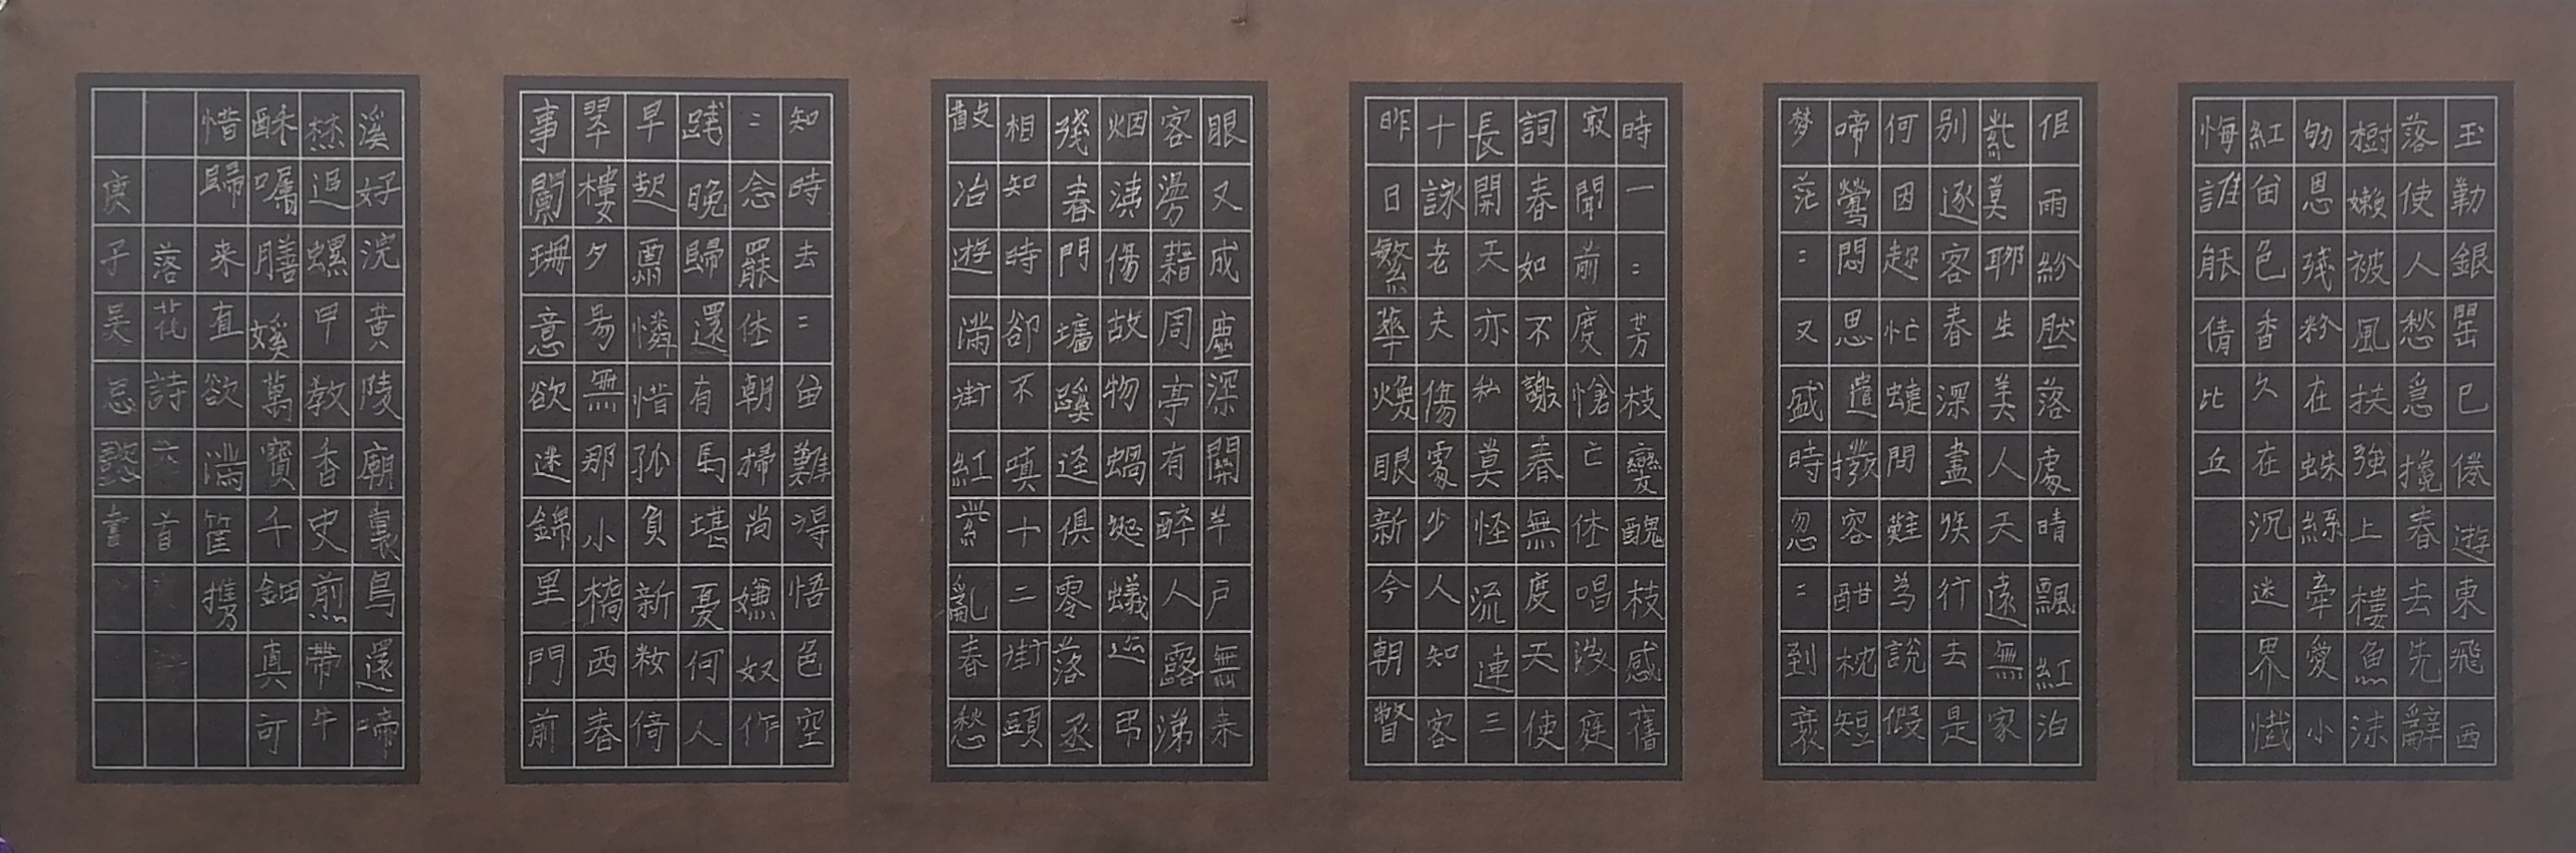 玉勒銀罌已倦遊東飛西
落使人愁急攙春去先辭
樹嬾被風扶強上樓魚沫
劬恩殘粉在蛛絲牽愛小
紅留色香久在沉迷界懺
悔誰能倩比丘
佀雨紛肰落處晴飄紅泊
紫莫聊生美人天遠無家
别逐客春深盡族行去是
何因趂忙蜨間難為說假
啼鶯悶思遣撥容酣枕短
梦茫=又盛時忽=到衰
時一=芳枝變醜枝感舊
㝡聞前度愴亡休唱後庭
詞春如不謝春無度天使
長開天亦私莫怪流連三
十詠老夫傷處少人知客
昨日繁華煥眼新今朝瞥
眼又成塵深關羊户無来
客漫藉周亭有醉人露涕
烟洟傷故物蝸涎蟻迹弔
殘春門墻蹊逕俱零落丞
相知時卻不嗔十二街頭
散冶遊滿街紅紫亂春愁
知時去=留難得悟色空
=念罷休朝掃尚嫌奴作
踐晚歸還有馬堪憂何人
早起肅憐惜孤負新妝倚
翠樓夕昜無那小橋西春
事闌珊意欲迷錦里門前
溪好浣黄陵廟裏鳥還啼
焚追螺甲教香史煎帶牛
酥囑膳媄萬寶千鈿真可
惜歸来直欲滿筐攜
落花詩六首
庚子吴忌懿書